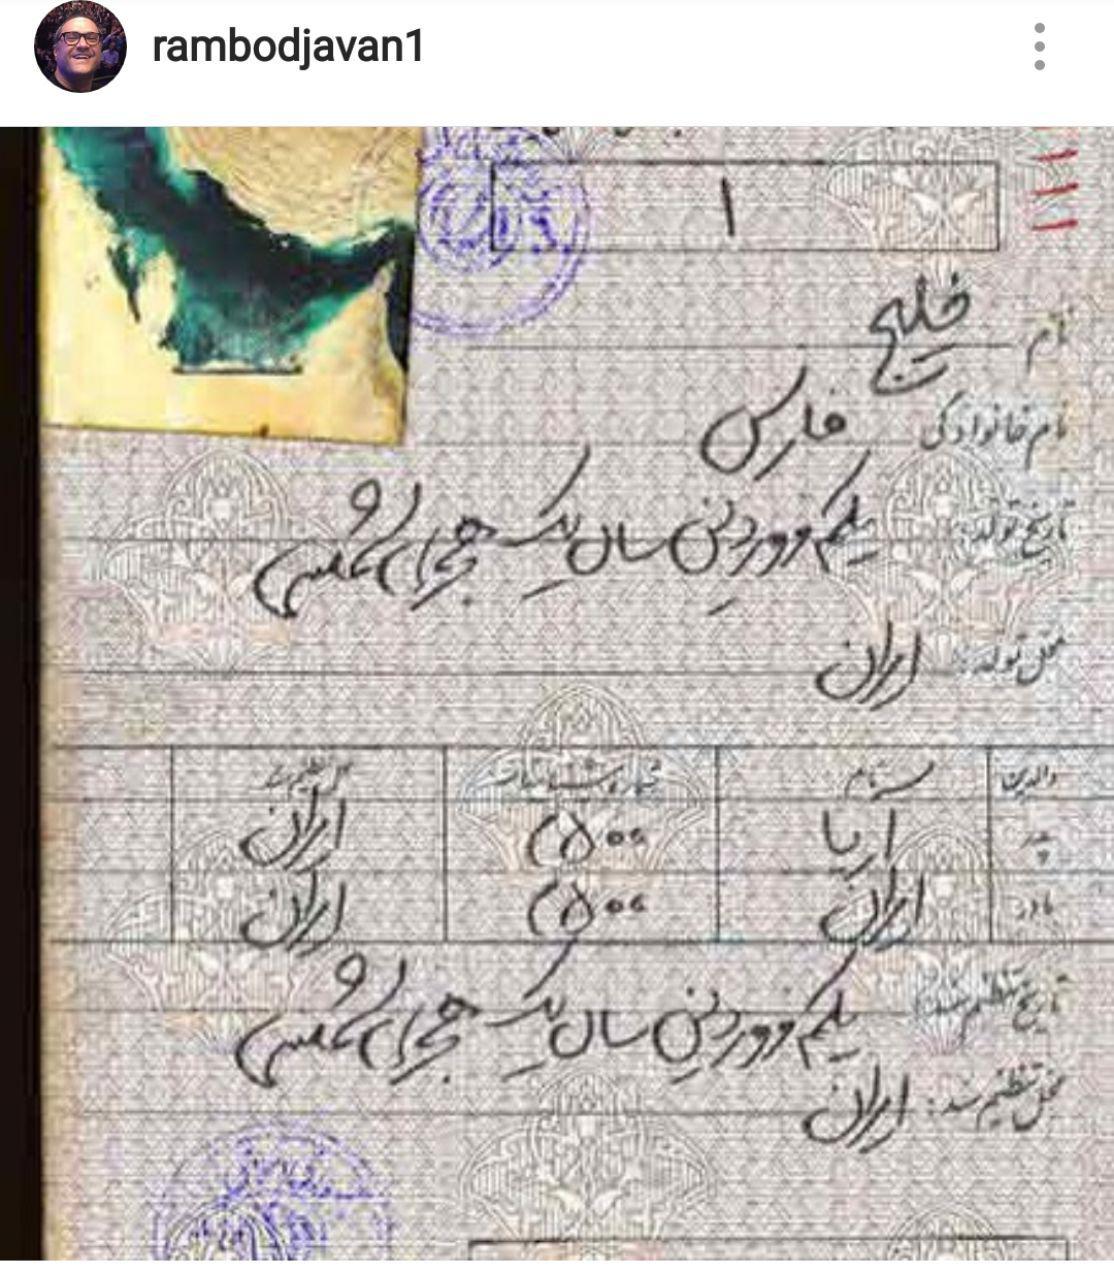 rambodjavan1
۱
نام خلیج
نام خانوادگی فارس
تاریخ تولد: یکم فروردین سال یک هجری شمسی
محل تولد: ایران
والدین نام شماره شناسنامه محل تنظیم سند
پدر آریا ۲۵۰۰ ایران
مادر ایران ۲۵۰۰ ایران
تاریخ تنظیم سند: یکم فروردین سال یک هجری شمسی
محل تنظیم سند: ایران